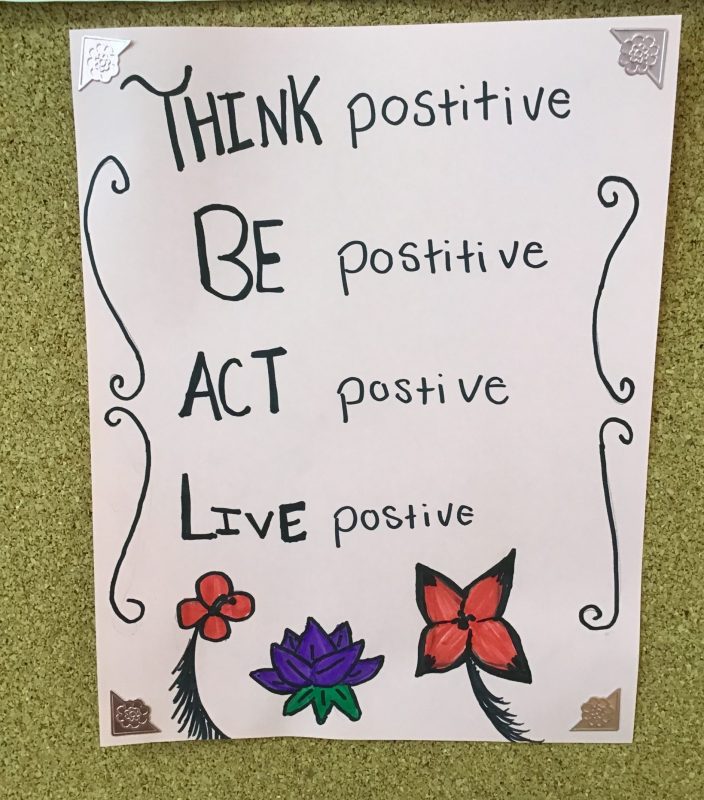 THINK postitive
BE postitive
ACT postive
LIVE postive